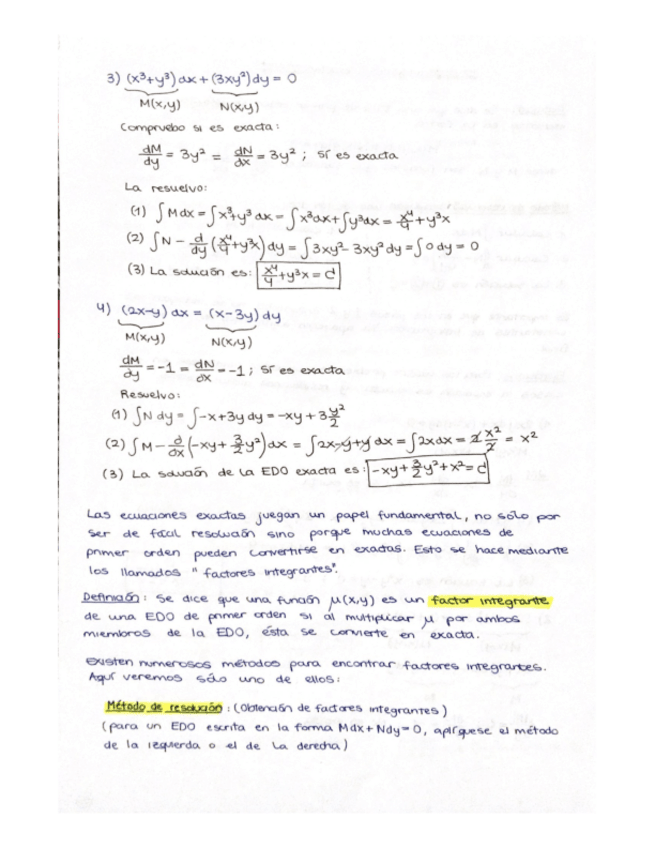 3) (x³+y³) dx + (3xy²) dy = 0
M(x,y) N(x,y)
Compruebo si es exacta:
dM/dy = 3y² = dN/dx = 3y² ; sí es exacta
La resuelvo:
(1) ∫ M dx = ∫ x³+y³ dx = ∫ x³dx + ∫ y³dx = x⁴/4 + y³x
(2) ∫ N - d/dy (x⁴/4 + y³x) dy = ∫ 3xy² - 3xy² dy = ∫ 0 dy = 0
(3) La solución es: x⁴/4 + y³x = c
4) (2x-y) dx = (x-3y) dy
M(x,y) N(x,y)
dM/dy = -1 = dN/dx = -1 ; sí es exacta
Resuelvo:
(1) ∫ N dy = ∫ -x+3y dy = -xy + 3 y²/2
(2) ∫ M - d/dx (-xy + 3/2 y²) dx = ∫ 2x-y+y dx = ∫ 2x dx = 2 x²/2 = x²
(3) La solución de la EDO exacta es: -xy + 3/2 y² + x² = c
Las ecuaciones exactas juegan un papel fundamental, no sólo por
ser de fácil resolución sino porque muchas ecuaciones de
primer orden pueden convertirse en exactas. Esto se hace mediante
los llamados "factores integrantes".
Definición: Se dice que una función μ(x,y) es un factor integrante
de una EDO de primer orden si al multiplicar μ por ambos
miembros de la EDO, ésta se convierte en exacta.
Existen numerosos métodos para encontrar factores integrantes.
Aquí veremos sólo uno de ellos:
Método de resolución: (Obtención de factores integrantes)
(para un EDO escrita en la forma Mdx + Ndy = 0, aplíquese el método
de la izquierda o el de la derecha)